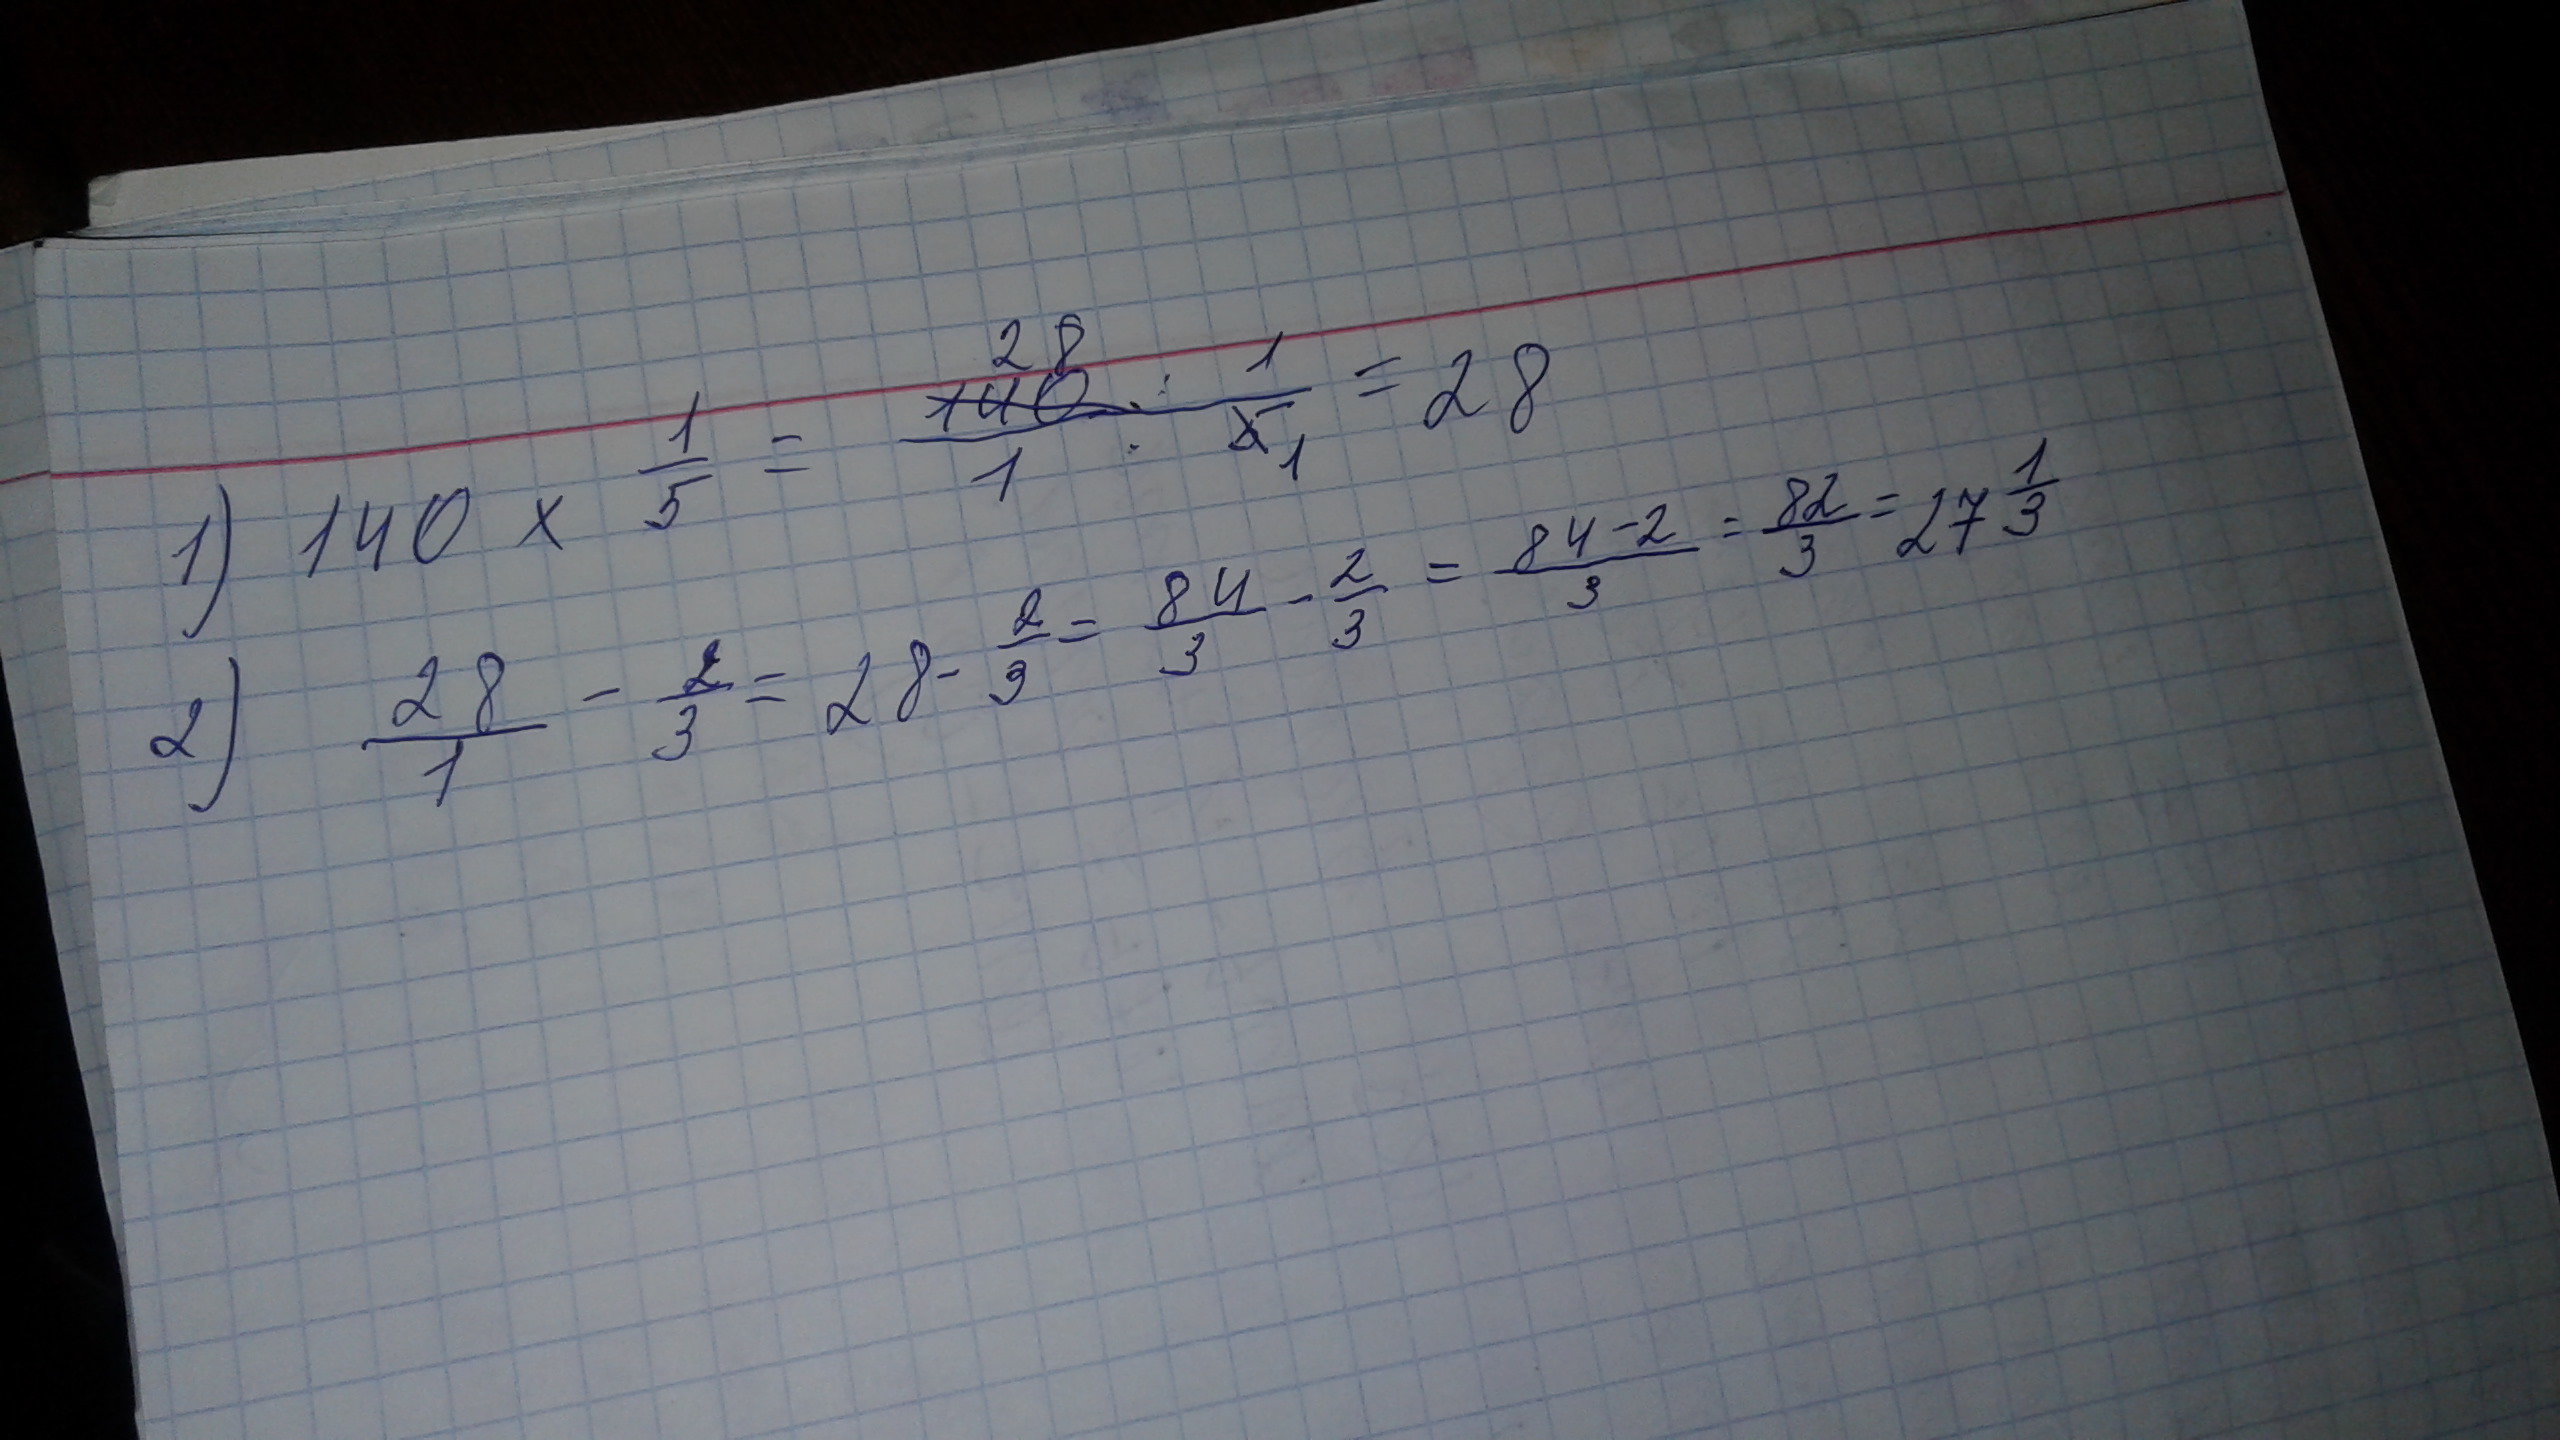 1) 140 × 1/5 = 28 140/1 : 1/5 1 = 28
2) 28/1 - 2/3 = 28 - 2/3 = 84/3 - 2/3 = 84-2/3 = 82/3 = 27 1/3